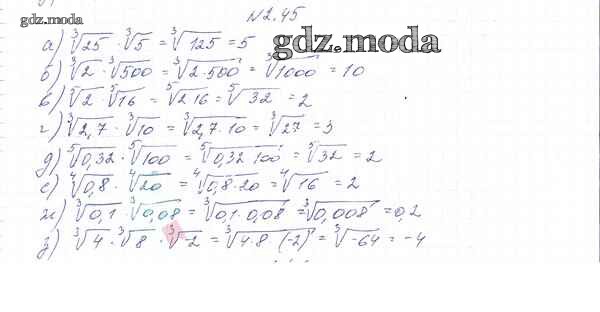 gdz.moda
№2.45
gdz.moda
а) ∛25 · ∛5 = ∛125 = 5
б) ∛2 · ∛500 = ∛2·500 = ∛1000 = 10
в) ⁵√2 · ⁵√16 = ⁵√2 16 = ⁵√32 = 2
г) ∛2,7 · ∛10 = ∛2,7·10 = ∛27 = 3
д) ⁵√0,32 · ⁵√100 = ⁵√0,32 100 = ⁵√32 = 2
е) ⁴√0,8 · ⁴√20 = ⁴√0,8·20 = ⁴√16 = 2
ж) ∛0,1 · ∛0,08 = ∛0,1·0,08 = ∛0,008 = 0,2
з) ∛4 · ∛8 · ∛-2 = ∛4·8·(-2) = ∛-64 = -4